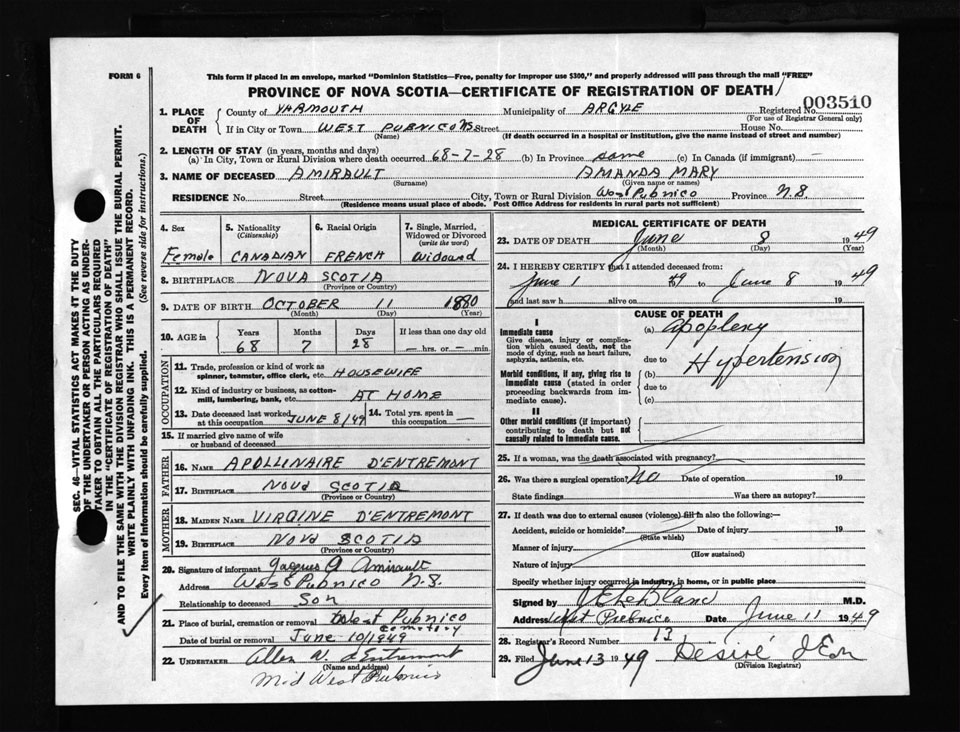 FORM 6
This form if placed in an envelope, marked "Dominion Statistics—Free, penalty for improper use $300," and properly addressed will pass through the mail "FREE"
PROVINCE OF NOVA SCOTIA—CERTIFICATE OF REGISTRATION OF DEATH
003510
1. PLACE OF DEATH County of YHAMOUTH Municipality of ARGYLE Registered No.
(For use of Registrar General only)
If in City or Town WEST PUBNICO NS Street House No.
(Name) (If death occurred in a hospital or institution, give the name instead of street and number)
2. LENGTH OF STAY (in years, months and days)
(a) In City, Town or Rural Division where death occurred 68-7-28 (b) In Province same (c) In Canada (if immigrant) —
3. NAME OF DECEASED AMIRAULT AMANDA MARY
(Surname) (Given name or names)
RESIDENCE No. Street City, Town or Rural Division West Pubnico Province N.S.
(Residence means usual place of abode. Post Office Address for residents in rural parts not sufficient)
4. Sex Female
5. Nationality (Citizenship) CANADIAN
6. Racial Origin FRENCH
7. Single, Married, Widowed or Divorced (write the word) Widowed
8. BIRTHPLACE NOVA SCOTIA
(Province or Country)
9. DATE OF BIRTH OCTOBER 11 1880
(Month) (Day) (Year)
10. AGE in Years 68 Months 7 Days 28 If less than one day — hrs. or — min.
OCCUPATION
11. Trade, profession or kind of work as spinner, teamster, office clerk, etc. HOUSEWIFE
12. Kind of industry or business, as cotton-mill, lumbering, bank, etc. AT HOME
13. Date deceased last worked at this occupation JUNE 8/49 14. Total yrs. spent in this occupation —
15. If married give name of wife or husband of deceased
FATHER
16. NAME APOLLINAIRE D'ENTREMONT
17. BIRTHPLACE NOVA SCOTIA
(Province or Country)
MOTHER
18. MAIDEN NAME VIRGINE D'ENTREMONT
19. BIRTHPLACE NOVA SCOTIA
(Province or Country)
20. Signature of informant Jacques A Amirault
Address West Pubnico N.S.
Relationship to deceased Son
21. Place of burial, cremation or removal West Pubnico Cemetery
Date of burial or removal June 10/1949
22. UNDERTAKER Allen W. d'Entremont
(Name and address)
Mid West Pubnico
MEDICAL CERTIFICATE OF DEATH
23. DATE OF DEATH June 8 1949
(Month) (Day) (Year)
24. I HEREBY CERTIFY that I attended deceased from:
June 1 49 to June 8 1949
and last saw h alive on 19
CAUSE OF DEATH
I
Immediate cause (a) Apoplexy
Give disease, injury or complication which caused death, not the mode of dying, such as heart failure, asphyxia, asthenia, etc.
due to Hypertension
Morbid conditions, if any, giving rise to immediate cause (stated in order proceeding backwards from immediate cause).
(b)
due to
(c)
II
Other morbid conditions (if important) contributing to death but not causally related to immediate cause.
25. If a woman, was the death associated with pregnancy?
26. Was there a surgical operation? No Date of operation 19
State findings Was there an autopsy?
27. If death was due to external causes (violence) fill in also the following:—
Accident, suicide or homicide? Date of injury 19
(State which)
Manner of injury
(How sustained)
Nature of injury
Specify whether injury occurred in industry, in home, or in public place
Signed by J E LeBlanc M.D.
Address West Pubnico Date June 11 1949
28. Registrar's Record Number 13
29. Filed June 13 1949 Desiré d'Eon
(Division Registrar)
SEC. 46—VITAL STATISTICS ACT MAKES IT THE DUTY
OF THE UNDERTAKER OR PERSON ACTING AS UNDERTAKER TO OBTAIN ALL THE PARTICULARS REQUIRED
IN THE "CERTIFICATE OF REGISTRATION OF DEATH"
AND TO FILE THE SAME WITH THE DIVISION REGISTRAR WHO SHALL ISSUE THE BURIAL PERMIT.
WRITE PLAINLY WITH UNFADING INK. THIS IS A PERMANENT RECORD.
Every item of information should be carefully supplied. (See reverse side for instructions.)